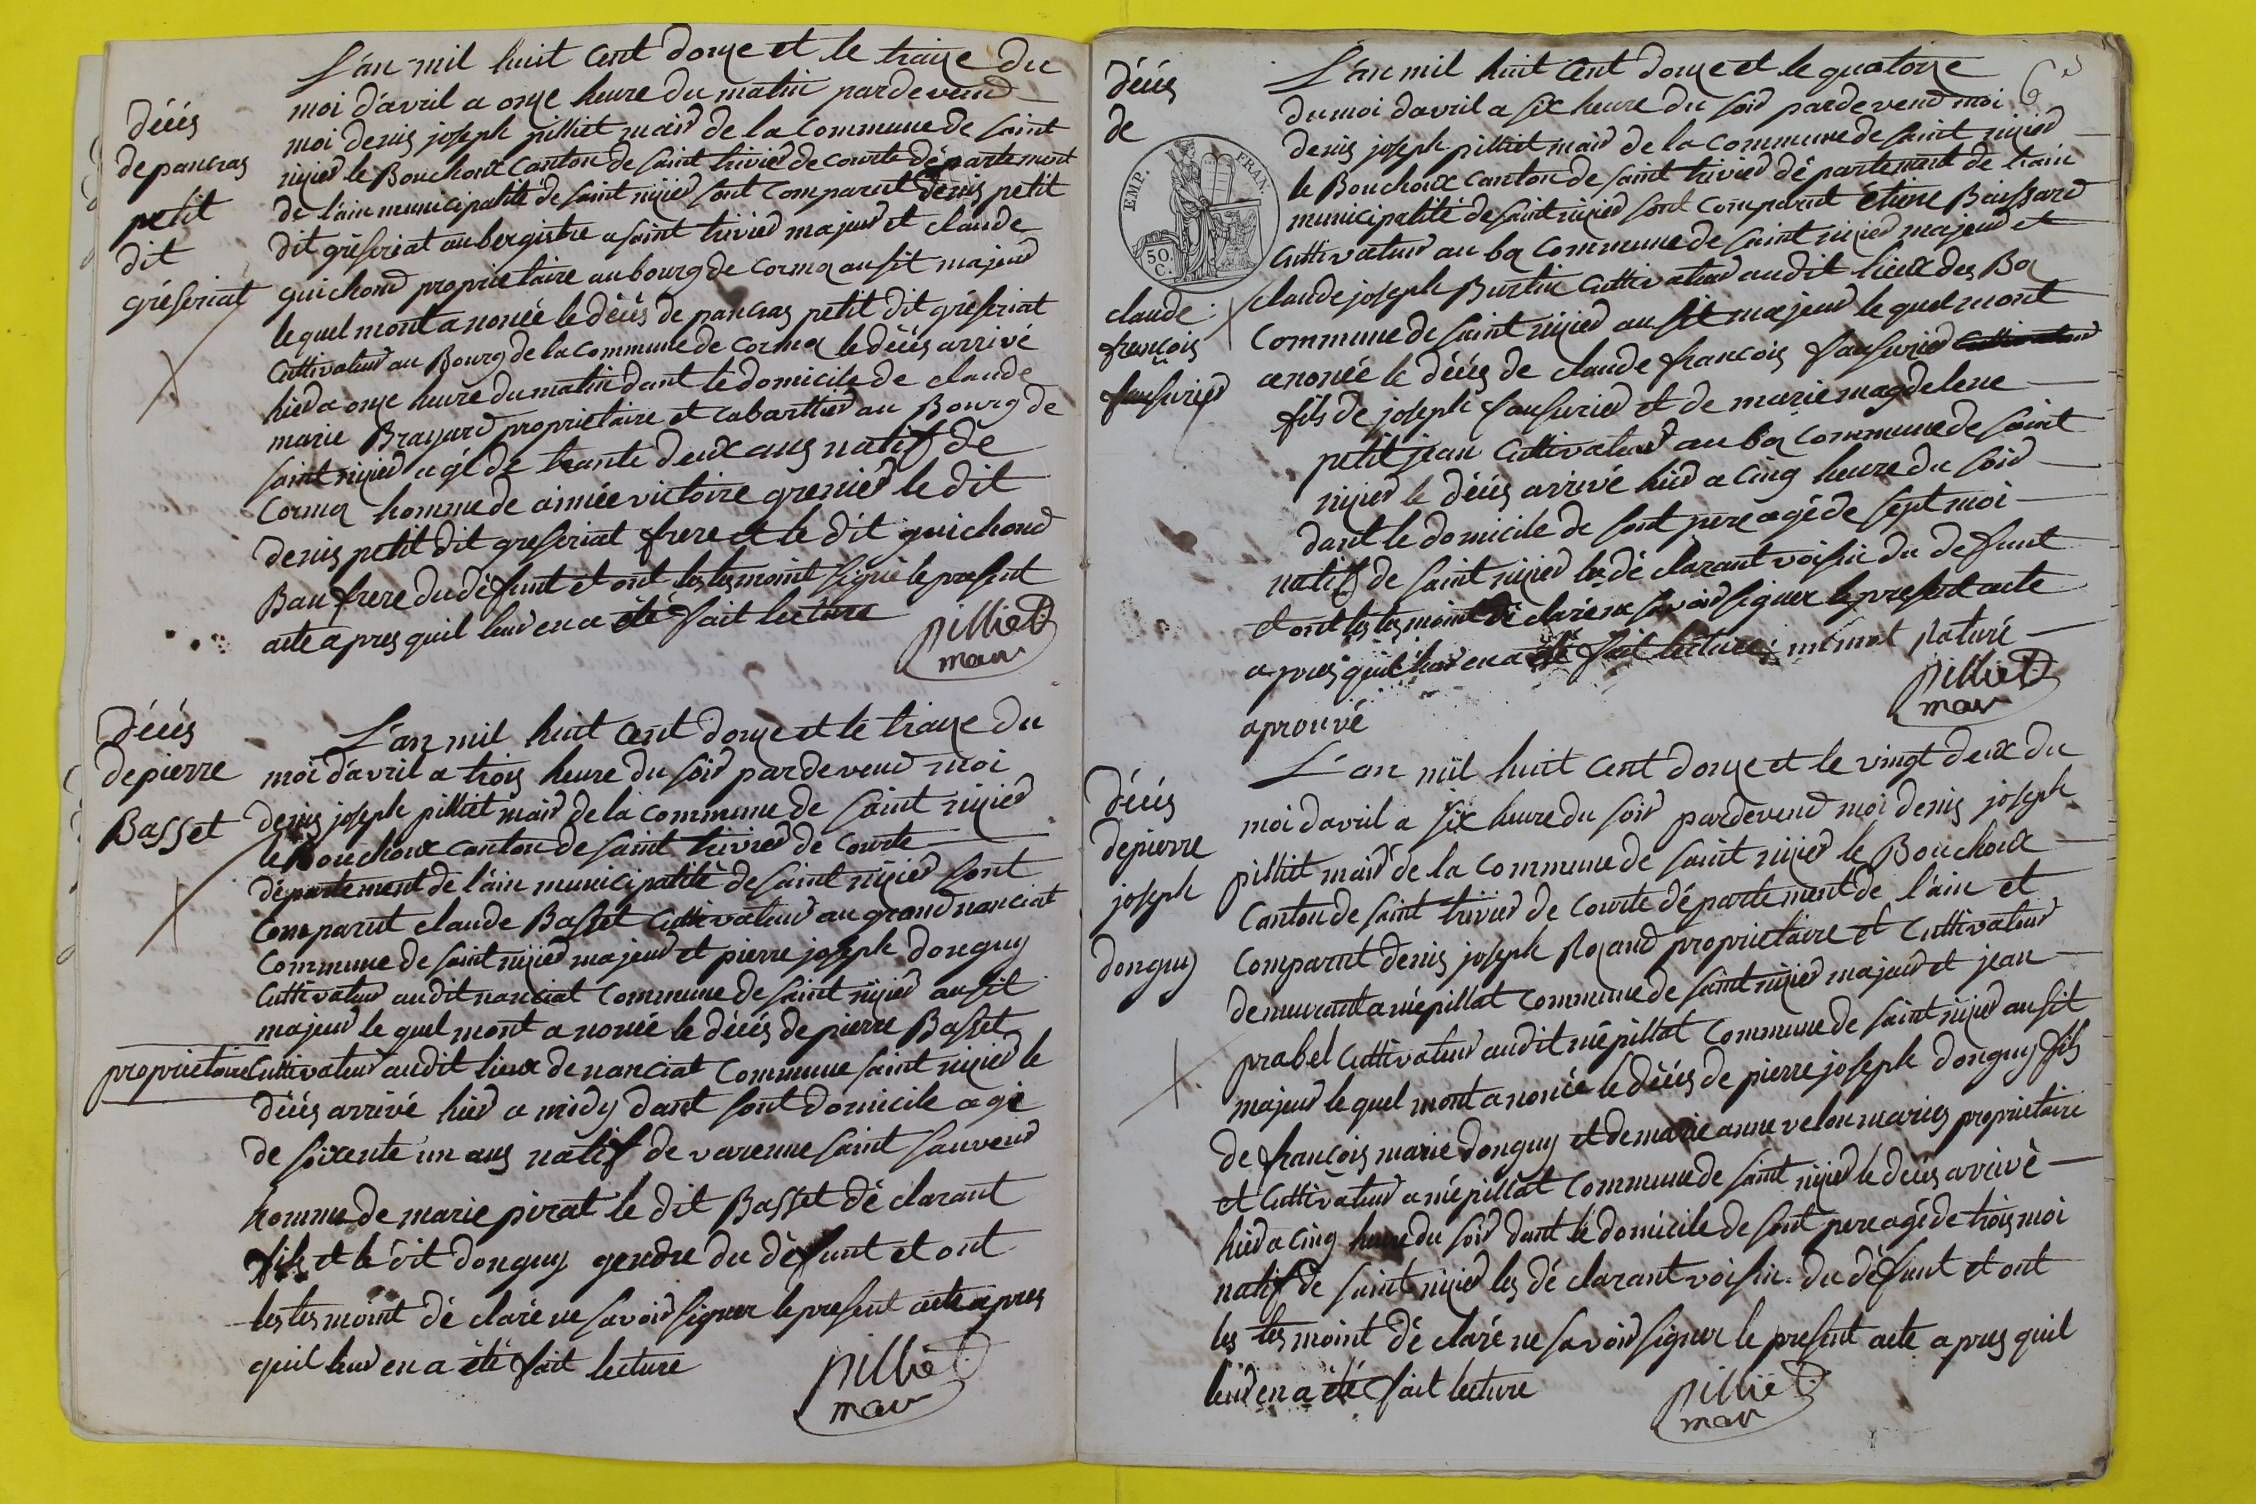 décès
de pancras
petit
dit
gréseriat
L'an mil huit cent douze et le traize du
moi d'avril a onze heure du matin pardevend
moi denis joseph pilliet maird de la Commune de saint
nizied le Bouchoux Canton de saint trivied de courte département
de l'ain municipalité de saint nizied sont comparut denis petit
dit gréseriat aubergistre a saint trivied majeud et claude
guichond propriétaire au bourg de cormoz ausit majeud
le quel mont anonée le décés de pancras petit dit gréseriat
Cultivateud au Bourg de la commune de cormoz le décés arrivé
hied a onze heure du matin dant le domicile de claude
marie Brayard propriétaire et cabarttied au Bourg de
saint nizied agé de trante deux ans natif de
Cormoz homme de aimée victoire grenied le dit
denis petit dit greseriat frere et le dit guichond
Beau frere du défunt et ont les tesmoint signié le present
acte apres quil leud en a été fait lecture
pilliet
mair
décés
de pierre
Basset
L'an mil huit cent douze et le traize du
moi d'avril a trois heure du soid pardevend moi
denis joseph pilliet maird de la commune de saint nizied
le Bouchoux canton de saint trivied de courte
département de l'ain municipalité de saint nizied sont
Comparut claude Basset Cultivateud au grand nanciat
Commune de saint nizied majeud et pierre joseph donguy
Cultivateud audit nanciat Commune de saint nizied ausit
majeud le quel mont anonée le décés de pierre Basset
propriétaire Cultivateud audit lieux de nanciat Commune saint nizied le
décés arrivé hied a midy dant sont domicile agé
de soixente un ans natif de varenne saint sauveud
homme de marie pirat le dit Basset déclarant
fils et le dit donguy gendre du défunt et ont
les tesmoint déclaré ne savoid signer le present acte apres
quil leud en a été fait lecture
pilliet
mair
6
décés
de
EMP. FRAN.
50.
C.
claude
françois
fausuried
L'an mil huit cent douze et le quatorze
du moi d'avril a six heure du soid pardevend moi
denis joseph pilliet maird de la Commune de saint nizied
le Bouchoux canton de saint trivied département de l'ain
municipalité de saint nizied sont comparut étiene Bussard
Cultivateud au boz Commune de saint nizied majeud et
claude joseph Burtin Cultivateud audit lieux des Boz
Commune de saint nizied ausit majeud le quel mont
anonée le décés de claude françois fausuried Cultivateud
fils de joseph fausuried et de marie magdelene
petit jean Cultivateud au boz Commune de saint
nizied le décés arrivé hied a cinq heure du soid
dant le domicile de sont pere agé de sept moi
natif de saint nizied les déclarant voisin du defunt
et ont les tesmoint déclaré ne savoid signer le present acte
apres quil leud en a été fait lecture un mot raturé
aprouvé
pilliet
mair
décés
de pierre
joseph
donguy
L'an mil huit cent douze et le vingt deux du
moi d'avril a six heure du soid pardevend moi denis joseph
pilliet maird de la Commune de saint nizied le Bouchoux
Canton de saint trivied de Courte département de l'ain et
Comparut denis joseph Rozand propriétaire et Cultivateud
demeurant a mépillat Commune de saint nizied majeud et jean
prabel Cultivateud audit mépillat Commune de saint nizied ausit
majeud le quel mont anonée le décés de pierre joseph donguy fils
de françois marie donguy et de marie anne velon mariés propriétaire
et Cultivateud a mépillat Commune de saint nizied le décés arrivé
hied a cinq heure du soid dant le domicile de sont pere agé de trois moi
natif de saint nizied les déclarant voisin du défunt et ont
les tesmoint déclaré ne savoid signer le present acte apres quil
leud en a été fait lecture
pilliet
mair